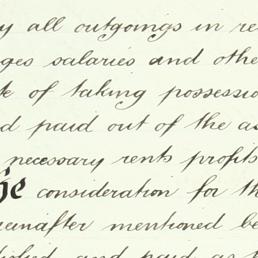 y all outgoings in re
ges salaries and othe
k of taking possessio
d paid out of the as
necessary rents profits
he consideration for th
reinafter mentioned be
and paid as